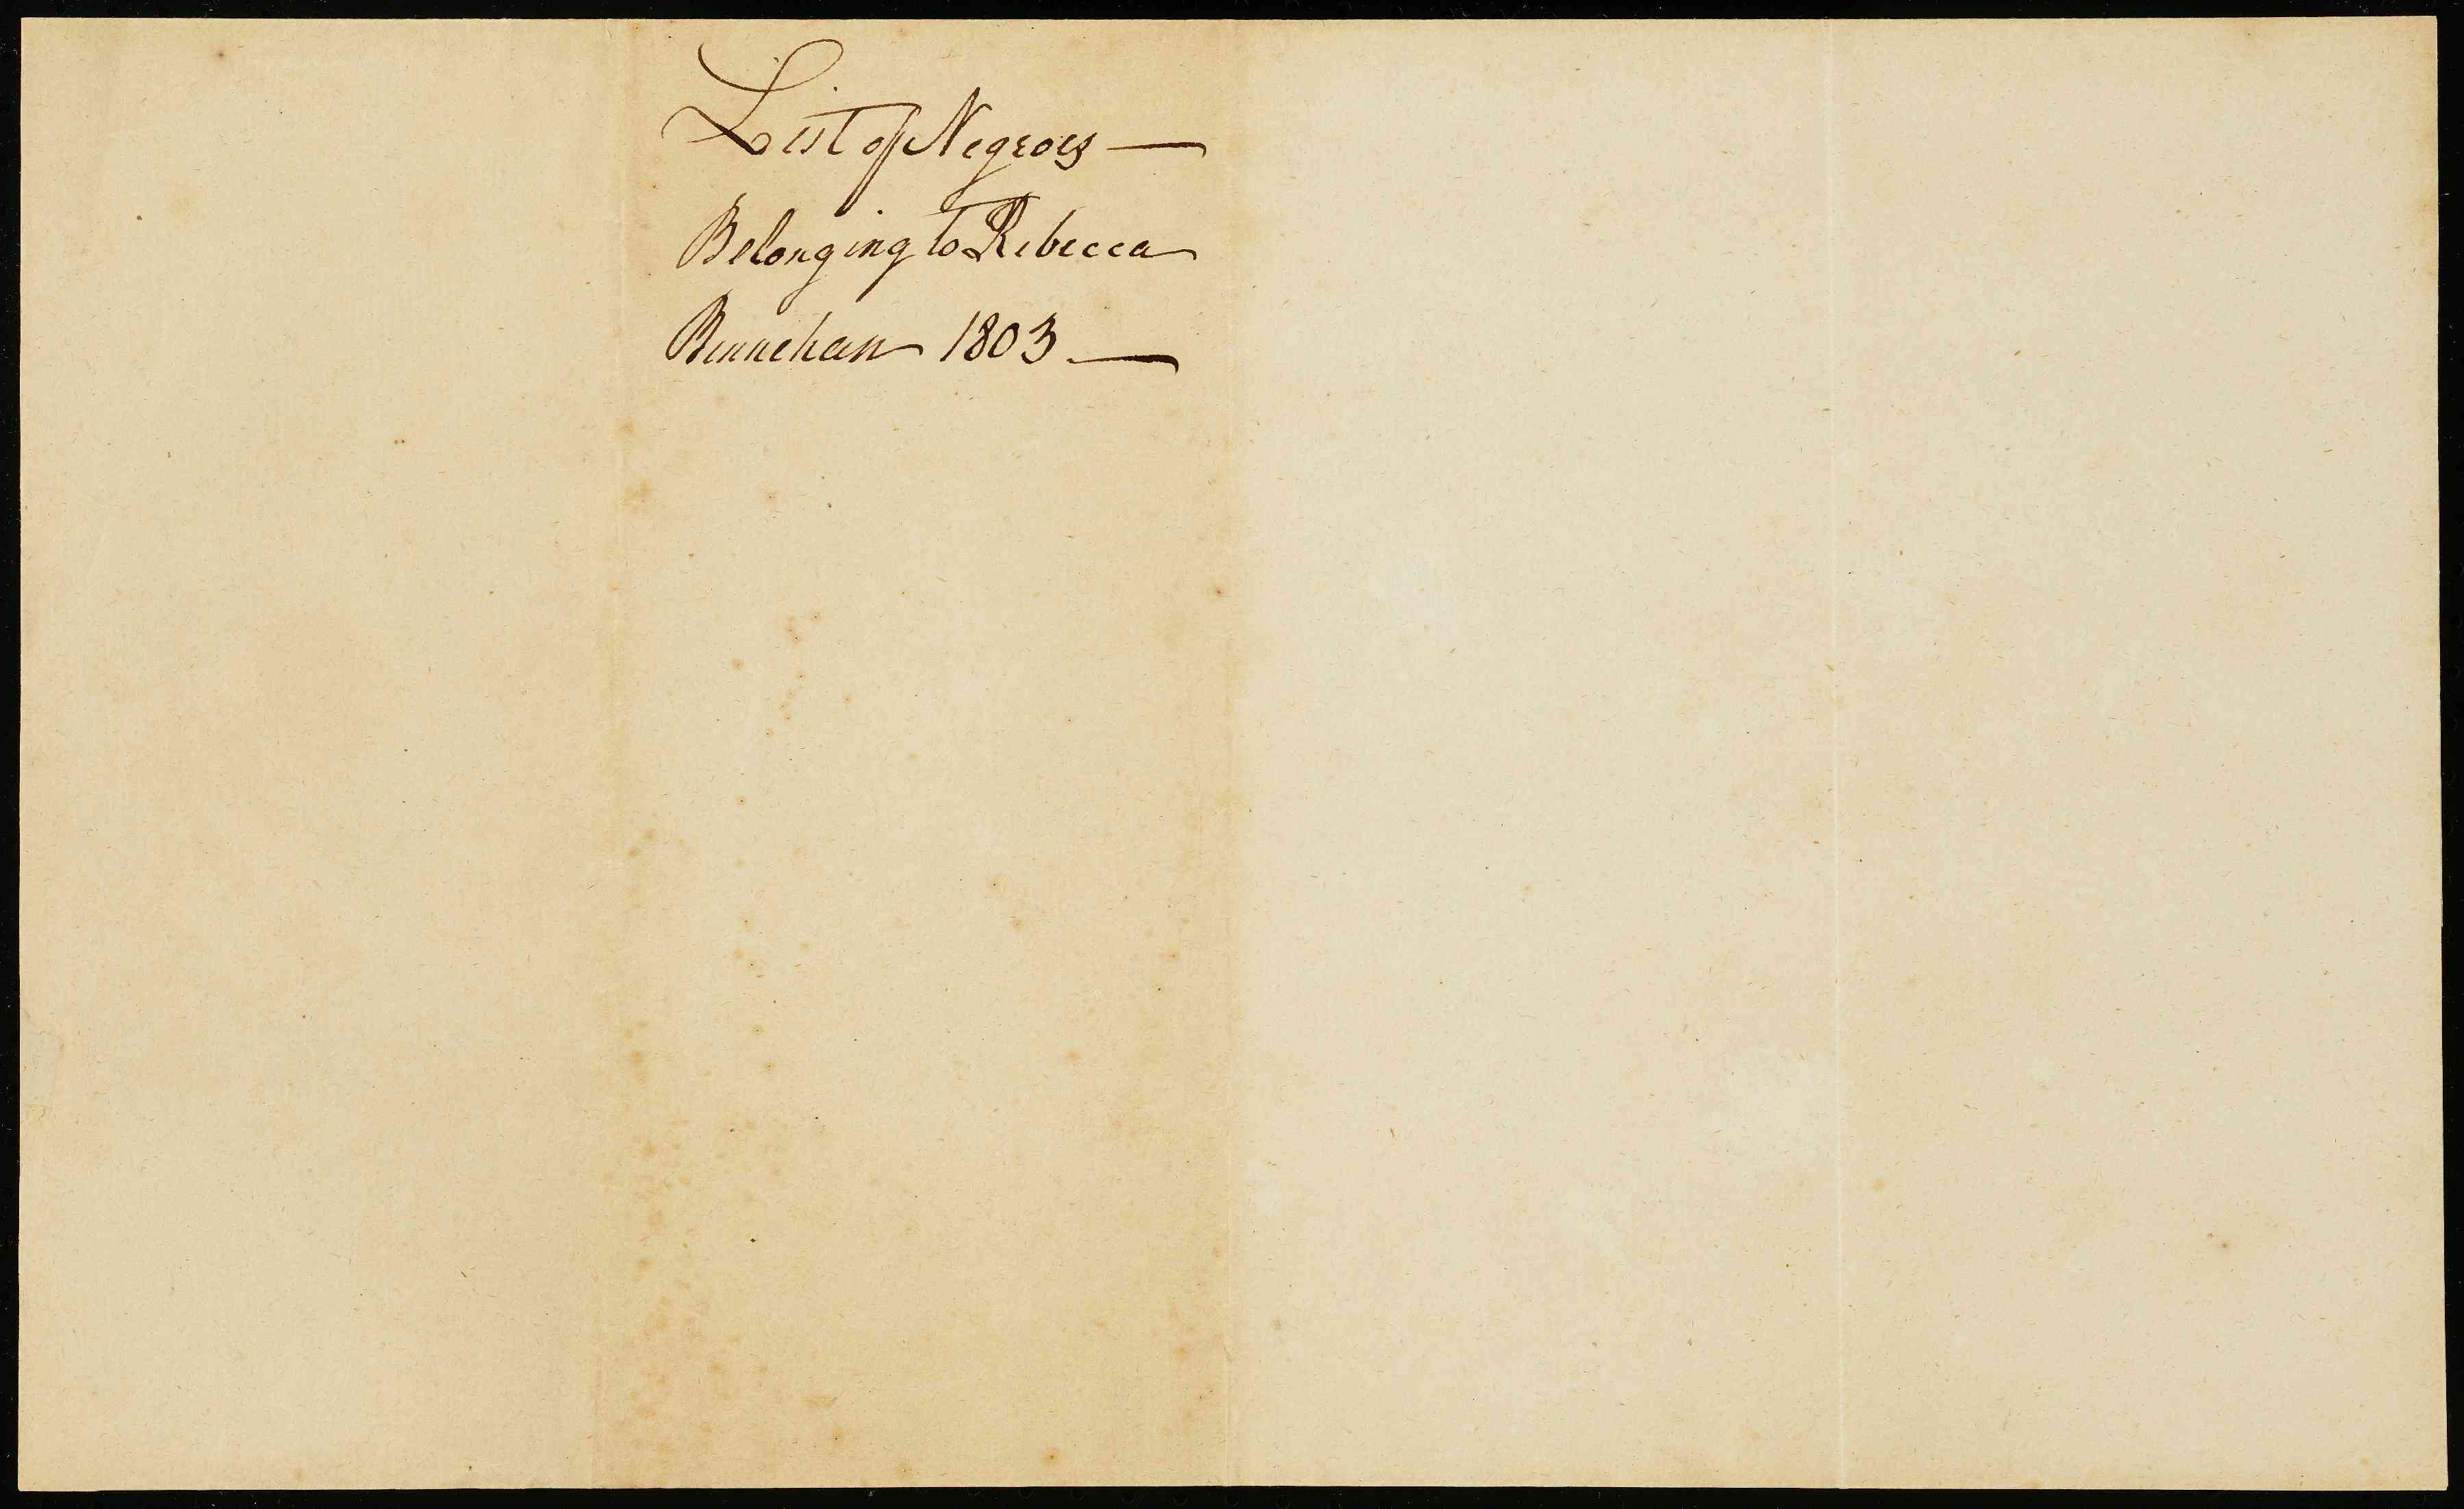 List of Negroes —
Belonging to Rebecca
Bennehan 1803 —